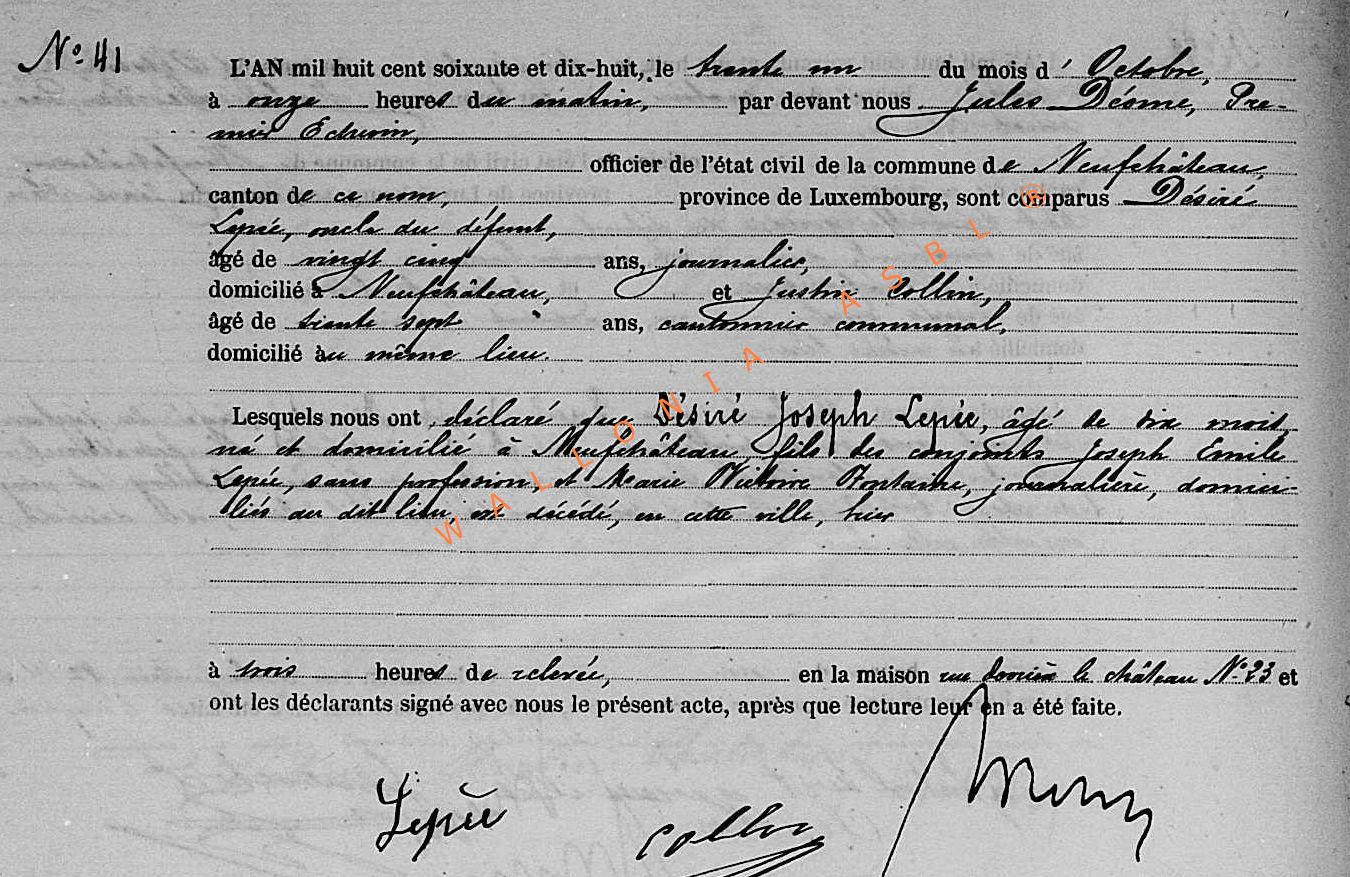 N° 41
L'AN mil huit cent soixante et dix-huit, le trente un du mois d' Octobre,
à onze heures du matin, par devant nous Jules Déome, Pre-
mier Echevin,
officier de l'état civil de la commune de Neufchâteau,
canton de ce nom, province de Luxembourg, sont comparus Désiré
Lepée, oncle du défunt,
âgé de vingt cinq ans, journalier,
domicilié à Neufchâteau, et Justin Collin,
âgé de trente sept ans, cantonnier communal,
domicilié au même lieu.
Lesquels nous ont déclaré que Désiré Joseph Lepée, âgé de dix mois,
né et domicilié à Neufchâteau, fils des conjoints Joseph Emile
Lepée, sans profession, et Marie Victoire Fontaine, journalière, domici-
liés au dit lieu, est décédé, en cette ville, hier
à trois heures de relevée, en la maison rue derrière le château N° 23 et
ont les déclarants signé avec nous le présent acte, après que lecture leur en a été faite.
Lepée
Collin
WALLONIA ASBL ®